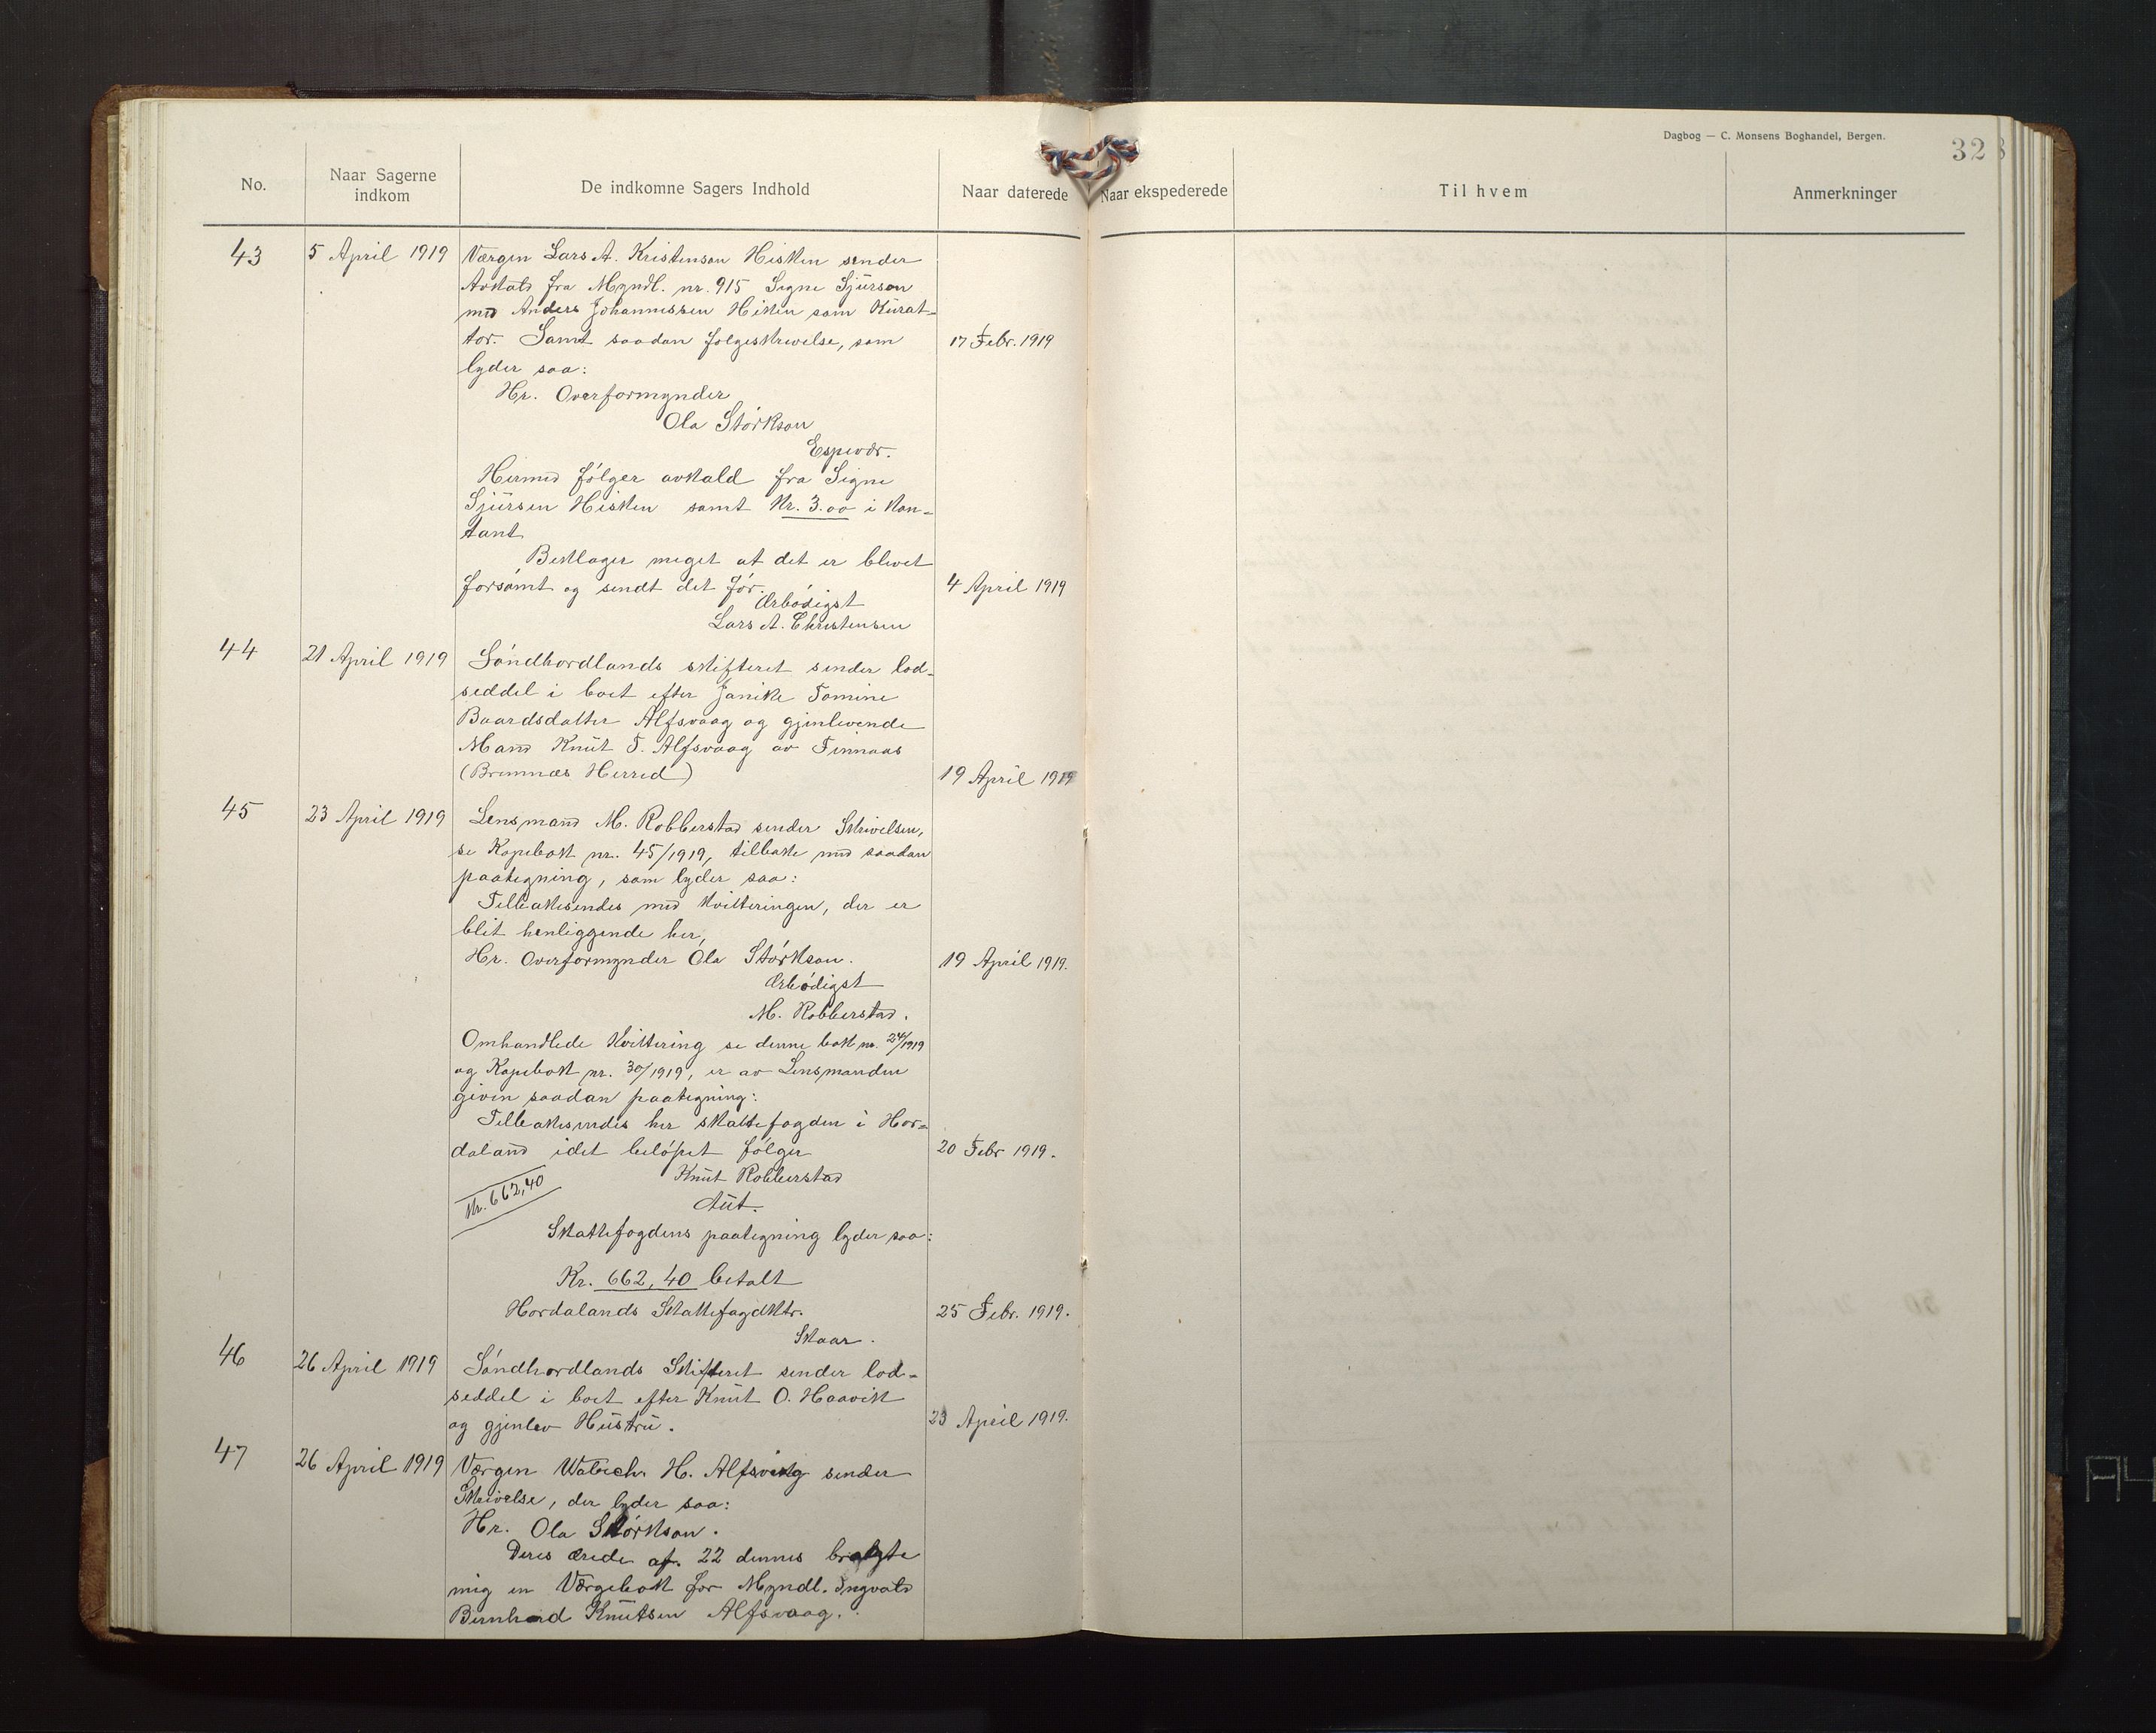 Dagbog — C. Monsens Boghandel, Bergen.
32
No.
Naar Sagerne indkom
De indkomne Sagers Indhold
Naar daterede
Naar ekspederede
Til hvem
Anmerkninger
43 5 April 1919 Værgen Lars A. Kristenson Hisken sender
Avkald fra Myndl. nr. 915 Signe Sjurson
med Anders Johannessen Hisken som Kurat-
tor. Samt saadan følgeskrivelse, som 17 Febr. 1919
lyder saa:
Hr. Overformynder
Ola Störkson
Espevær.
Hermed følger avkald fra Signe
Sjursen Hisken samt Kr. 3.00 i kon-
tant
Beklager meget at det er blevet
forsömt og sendt det för. 4 April 1919
Ærbödigst
Lars A. Christensen
44 21 April 1919 Söndhordlands skifteret sender lod-
seddel i boet efter Janike Tomine
Baardsdatter Alfsvaag og gjenlevende
Mand Knut T. Alfsvaag av Finnaas
(Bremnæs Herred) 19 April 1919
45 23 April 1919 Lensmand M. Robberstad sender Skrivelsen,
se Kopibok nr. 45/1919, tilbake med saadan
paategning, som lyder saa:
Tilbakesendes med kvitteringen, der er
blit henliggende her,
Hr. Overformynder Ola Störkson. 19 April 1919.
Ærbödigst
M. Robberstad.
Omhandlede Kvittering se denne bok nr. 24/1919
og Kopibok nr. 30/1919, er av Lensmanden
given saadan paategning:
Tilbakesendes hr skattefogden i Hor-
daland idet belöpet fölger 20 Febr 1919.
Knut Robberstad
Aut.
Kr. 662,40
Skattefogdens paategning lyder saa:
Kr. 662,40 betalt
Hordalands Skattefogdktr. 25 Febr. 1919.
Skaar.
46 26 April 1919 Söndhordlands Skifteret sender lod-
seddel i boet efter Knut O. Haavik
og gjenlev Hustru. 23 April 1919.
47 26 April 1919 Værgen H. Alfsvaag sender
Skrivelse, der lyder saa:
Hr. Ola Störkson.
Deres ærede af. 22 dennes bragte
mig en Værgebok for Myndl. Ingvald
Bernhard Knutsen Alfsvaag.